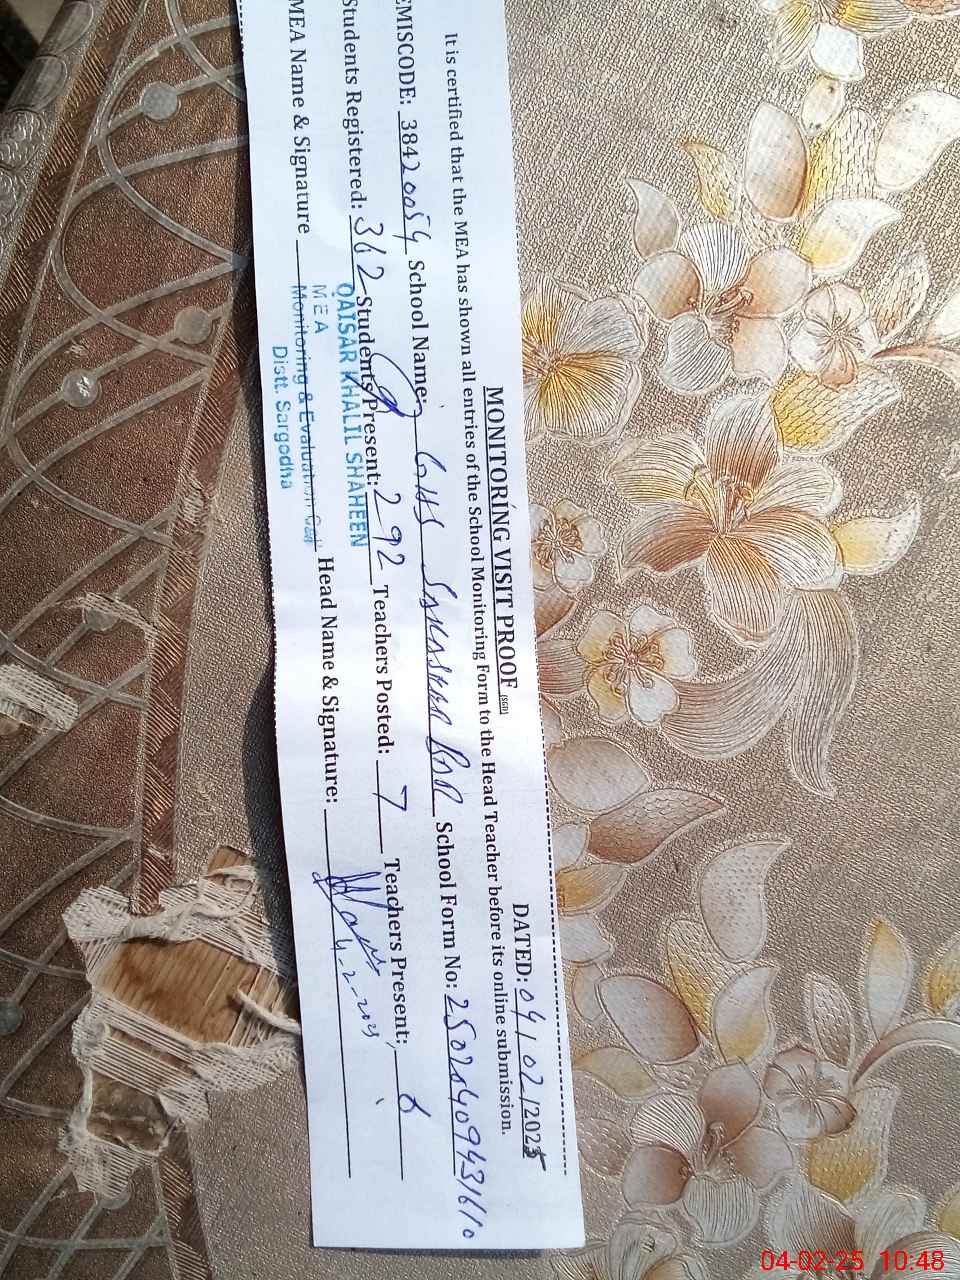 MONITORING VISIT PROOF (SGD) DATED: 04/02/2025
It is certified that the MEA has shown all entries of the School Monitoring Form to the Head Teacher before its online submission.
EMISCODE: 38420054 School Name: GHS BAR School Form No:
Students Registered: 362 Students Present: 292 Teachers Posted: 7 Teachers Present: 6
MEA Name & Signature Head Name & Signature:
4-2-2025
QAISAR KHALIL SHAHEEN
MEA
Monitoring & Evaluation Cell
Distt. Sargodha
04-02-25 10:48